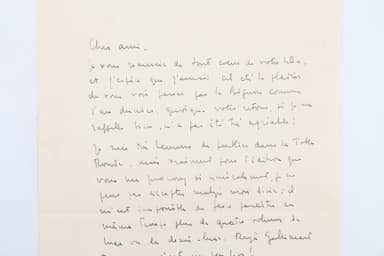 Cher ami,
je vous remercie de tout cœur de votre lettre,
et j'espère que j'aurai cet été le plaisir
de vous voir passer par la Régie comme
l'an dernier, quoique votre retour, si je me
rappelle bien, n'a pas été très agréable !
Je suis très heureux de paraître dans la Table
Ronde, mais vraiment pour l'édition que
vous me proposez si amicalement, je ne
peux pas accepter malgré mon désir ; il
m'est impossible de faire paraître en
même temps plus de quatre volumes de
luxe ou de demi-luxe. Gallimard